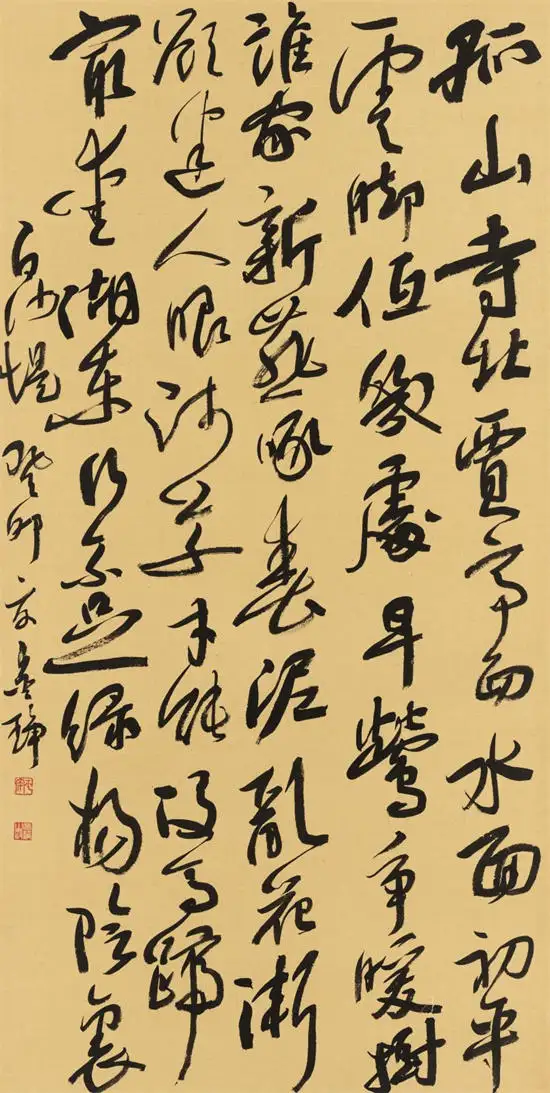 孤山寺北賈亭西水面初平
雲脚低幾處早鶯爭暖樹
誰家新燕啄春泥亂花漸
欲迷人眼淺草才能没馬蹄
最愛湖東行不足綠楊陰裏
白沙堤 癸卯夏